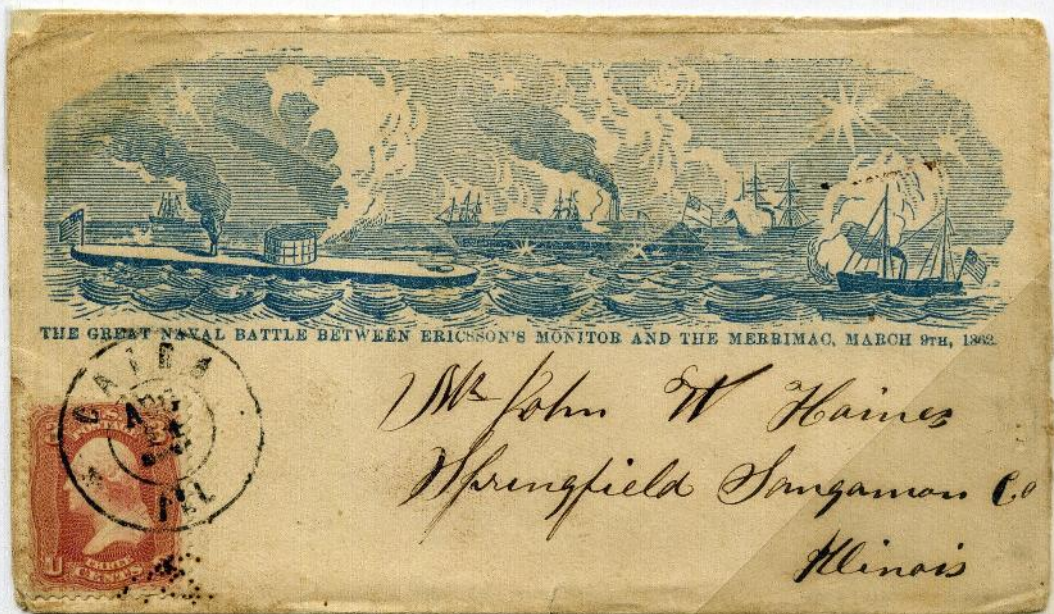 THE GREAT NAVAL BATTLE BETWEEN ERICSSON'S MONITOR AND THE MERRIMAC, MARCH 9TH, 1862.
CAIRO
ILL
U.S.
POSTAGE
3 3
THREE
U CENTS
Mr John W Haines
Springfield Sangamon Co
Illinois